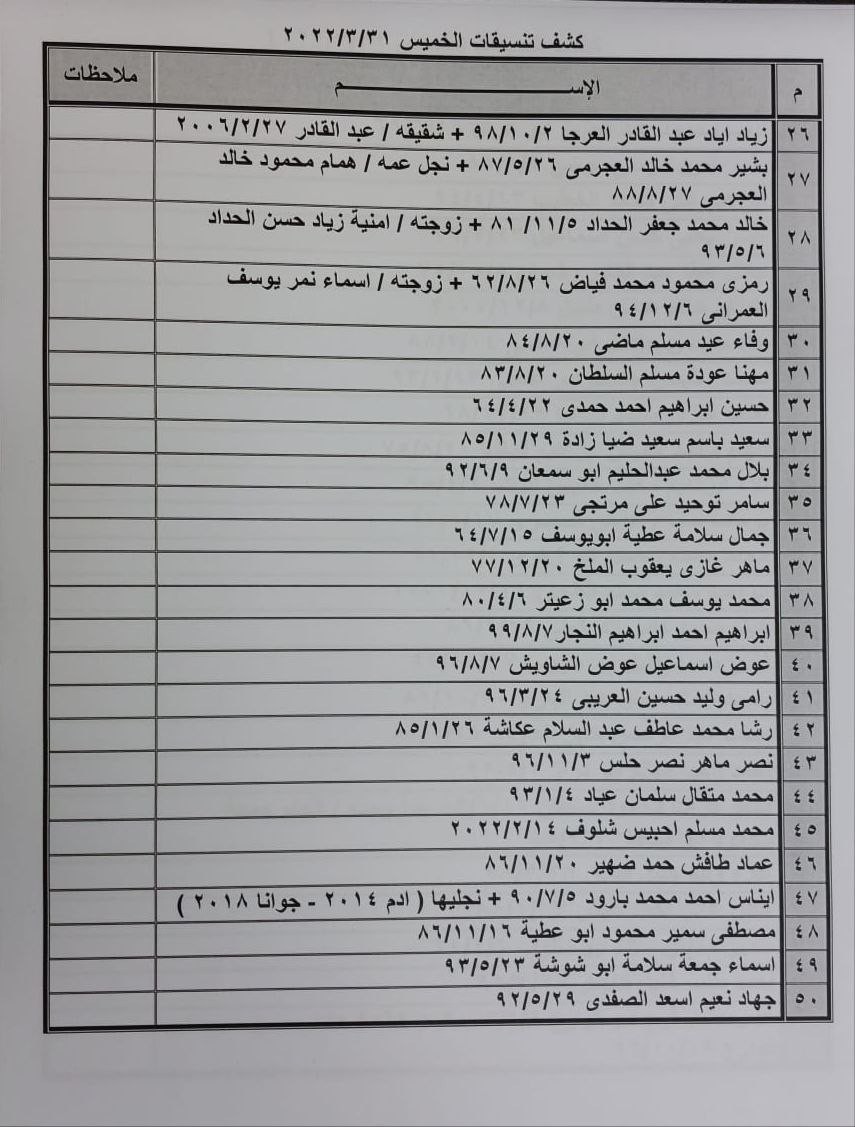 كشف تنسيقات الخميس ٢٠٢٢/٣/٣١
م الإســـــــــم ملاحظات
٢٦ زياد اياد عبد القادر العرجا ٩٨/١٠/٢ + شقيقه / عبد القادر ٢٠٠٦/٢/٢٧
٢٧ بشير محمد خالد العجرمى ٨٧/٥/٢٦ + نجل عمه / همام محمود خالد
العجرمى ٨٨/٨/٢٧
٢٨ خالد محمد جعفر الحداد ٨١/١١/٥ + زوجته / امنية زياد حسن الحداد
٩٣/٥/٦
٢٩ رمزى محمود محمد فياض ٦٢/٨/٢٦ + زوجته / اسماء نمر يوسف
العمرانى ٩٤/١٢/٦
٣٠ وفاء عيد مسلم ماضى ٨٤/٨/٢٠
٣١ مهنا عودة مسلم السلطان ٨٣/٨/٢٠
٣٢ حسين ابراهيم احمد حمدى ٦٤/٤/٢٢
٣٣ سعيد باسم سعيد ضيا زادة ٨٥/١١/٢٩
٣٤ بلال محمد عبدالحليم ابو سمعان ٩٢/٦/٩
٣٥ سامر توحيد على مرتجى ٧٨/٧/٢٣
٣٦ جمال سلامة عطية ابويوسف ٦٤/٧/١٥
٣٧ ماهر غازى يعقوب الملخ ٧٧/١٢/٢٠
٣٨ محمد يوسف محمد ابو زعيتر ٨٠/٤/٦
٣٩ ابراهيم احمد ابراهيم النجار٩٩/٨/٧
٤٠ عوض اسماعيل عوض الشاويش ٩٦/٨/٧
٤١ رامى وليد حسين العريبى ٩٦/٣/٢٤
٤٢ رشا محمد عاطف عبد السلام عكاشة ٨٥/١/٢٦
٤٣ نصر ماهر نصر حلس ٩٦/١١/٣
٤٤ محمد متقال سلمان عياد ٩٣/١/٤
٤٥ محمد مسلم احبيس شلوف ٢٠٢٢/٢/١٤
٤٦ عماد طافش حمد ضهير ٨٦/١١/٢٠
٤٧ ايناس احمد محمد بارود ٩٠/٧/٥ + نجليها ( ادم ٢٠١٤ - جوانا ٢٠١٨ )
٤٨ مصطفى سمير محمود ابو عطية ٨٦/١١/١٦
٤٩ اسماء جمعة سلامة ابو شوشة ٩٣/٥/٢٣
٥٠ جهاد نعيم اسعد الصفدى ٩٢/٥/٢٩